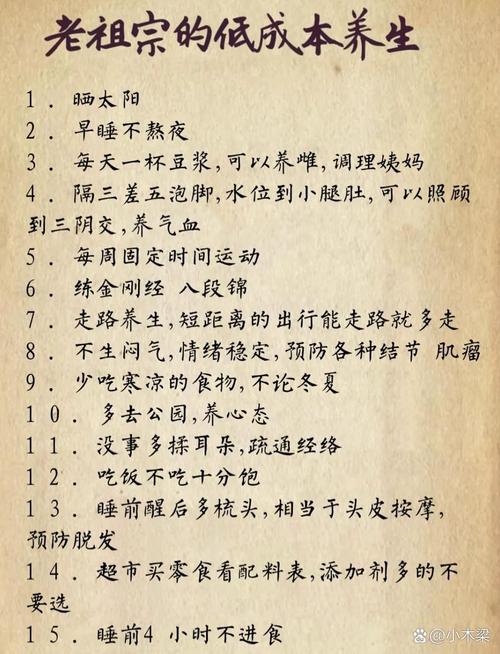 老祖宗的低成本养生
1．晒太阳
2．早睡不熬夜
3．每天一杯豆浆,可以养雌,调理姨妈
4．隔三差五泡脚,水位到小腿肚,可以照顾
到三阴交,养气血
5．每周固定时间运动
6．练金刚经 八段锦
7．走路养生,短距离的出行能走路就多走
8．不生闷气,情绪稳定,预防各种结节 肌瘤
9．少吃寒凉的食物,不论冬夏
10．多去公园,养心态
11．没事多揉耳朵,疏通经络
12．吃饭不吃十分饱
13．睡前醒后多梳头,相当于头皮按摩,
预防脱发
14．超市买零食看配料表,添加剂多的不
要选
15．睡前4 小时不进食
@小木梁